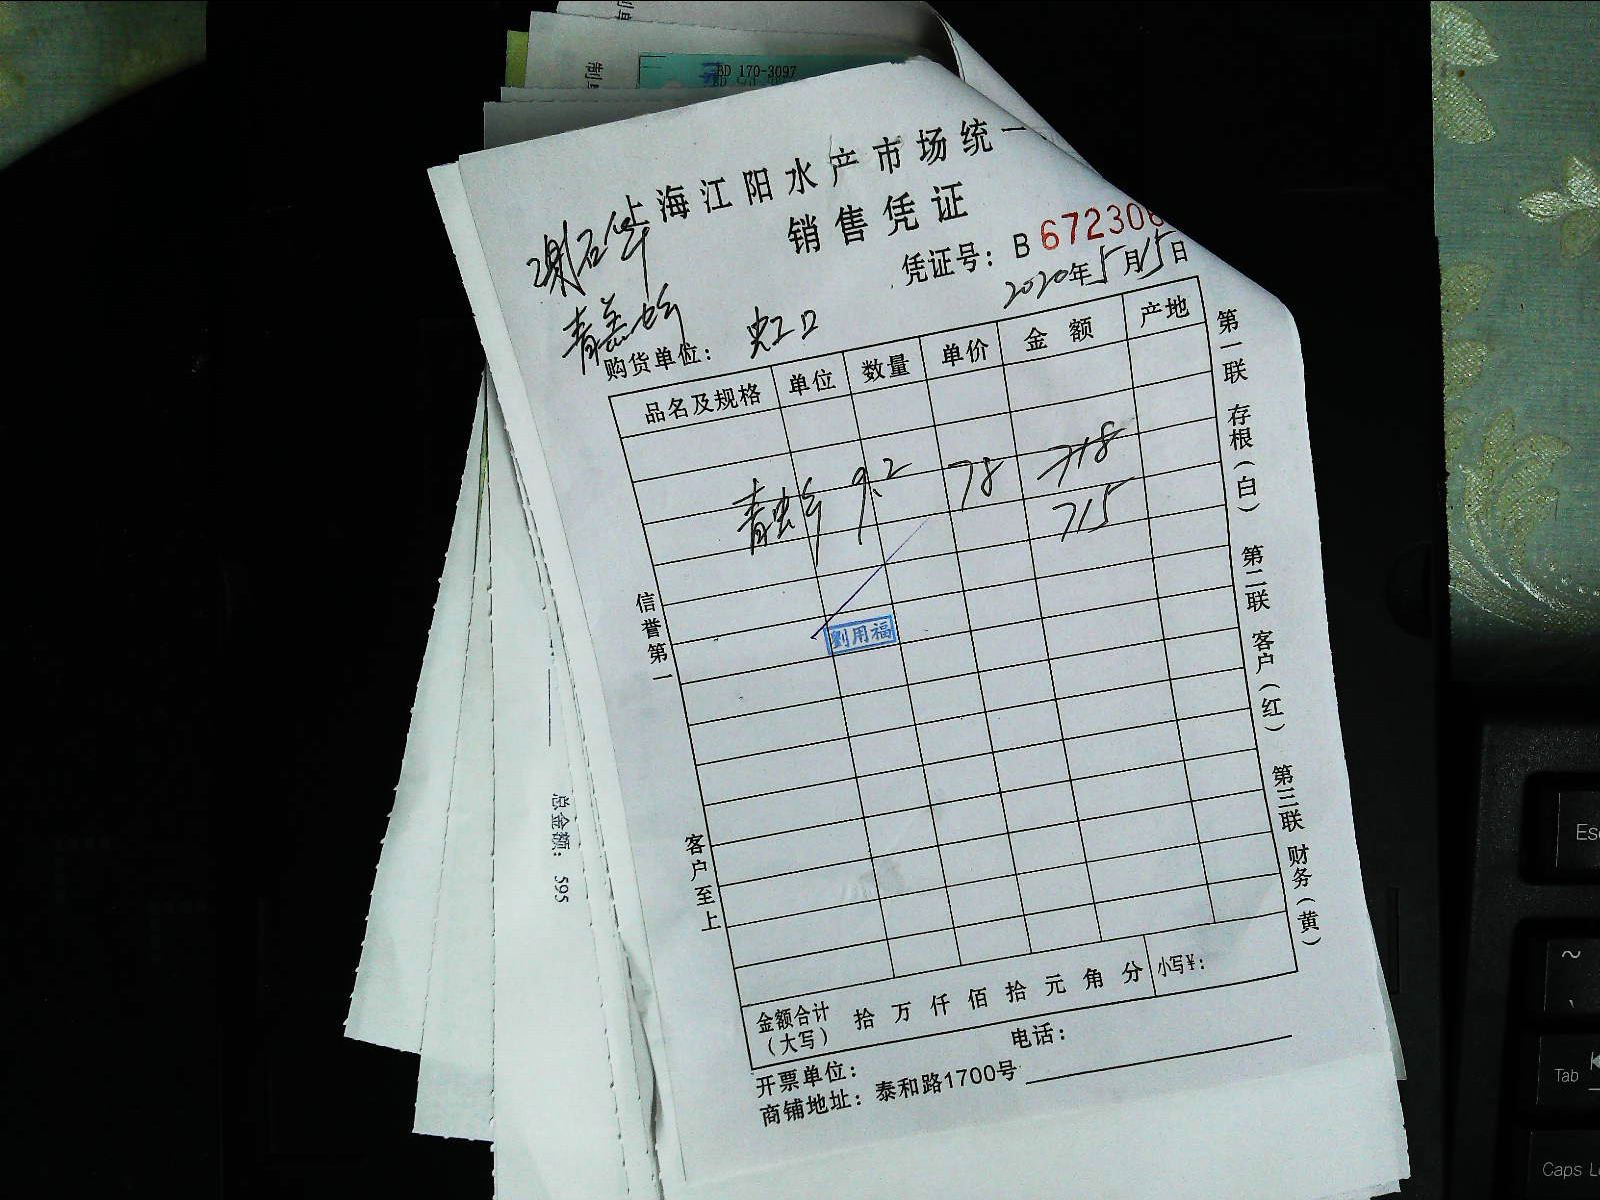 BD 170-3097
上海江阳水产市场统一
销售凭证
凭证号： B 672306
2020年5月15日
购货单位： 虹口
品名及规格 单位 数量 单价 金额 产地
青虫 9.2 78 718
715
劉用福
信誉第一
客户至上
第一联 存根（白） 第二联 客户（红） 第三联 财务（黄）
金额合计（大写） 拾 万 仟 佰 拾 元 角 分 小写¥：
开票单位： 电话：
商铺地址： 泰和路1700号
总金额: 595
Esc
~
Tab
Caps L